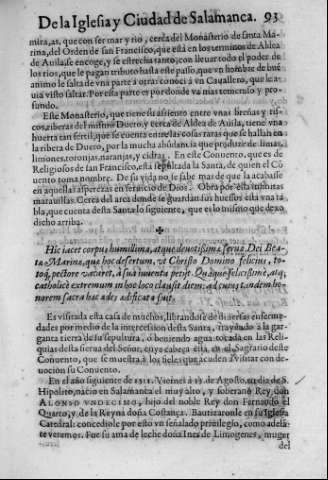 De la Iglesia y Ciudad de Salamanca. 93
mira, as, que con ser mar y rio, cerca del Monasterio de santa Ma-
rina, del Orden de san Francisco, que està en los terminos de Aldea
de Auila, se encoge, y se estrecha tanto, con lleuar todo el poder de
los rios, que le pagan tributo hasta este passo, que vn hombre de buē
animo le salta de vna parte à otra: conoci à vn Cauallero, que le a-
uia visto saltar. Por esta parte es por donde va mas temeroso y pro-
fundo.
Este Monasterio, que tiene su assiento entre vnas breñas y ris-
cos, riberas del mismo Duero, y cerca de Aldea de Auila, tiene vna
huerta tan fertil, que se cuenta entre las cosas raras que se hallan en
la ribera de Duero, por la mucha abũdancia que produze de limas,
limones, toronjas, naranjas, y cidras. En este Conuento, que es de
Religiosos de san Francisco, està sepultada la Santa, de quien el Cō
uento toma nombre. De su vida no se sabe mas de que la acabasse
en aquellas asperezas en seruicio de Dios. Obra por ella infinitas
marauillas. Cerca del arca donde se guardan sus huessos està vna ta
bla, que cuenta desta Santa lo siguiente, que es lo mismo que dexo
dicho arriba.
✠
Hic iacet corpus humillima, atque deuotissima serua Dei Bea-
ta Marina, qua hoc desertum, vt Christo Domino felicius, to-
toq; pectore vacaret, à sua iuuenta petijt. Quaque felicissimè, atq;
catholicè extremum in hoc loco clausit diem: ad cuius tandem ho-
norem sacra hac ades adificata fuit.
Es visitada esta casa de muchos, librandose de diuersas enferme-
dades por medio de la intercession desta Santa, trayendo à la gar-
ganta tierra de su sepultura, ò beuiendo agua tocada en las Reli-
quias desta sierua del Señor, cuya cabeça està, en el Sagrario deste
Conuento, que se muestra à los fieles que acuden à visitar con de-
uocion su Conuento.
En el año siguiente de 1311. Viernes à 13 de Agosto, en dia de S.
Hipolito, nacio en Salamanca el muy alto, y soberano Rey don
ALONSO VNDECIMO, hijo del noble Rey don Fernando el
Quarto, y de la Reyna doña Costança. Bautizaronle en su Iglesia
Catedral: concediole por esto vn señalado priuilegio, como adelā-
te veremos. Fue su ama de leche doña Ines de Limogenes, muger
del